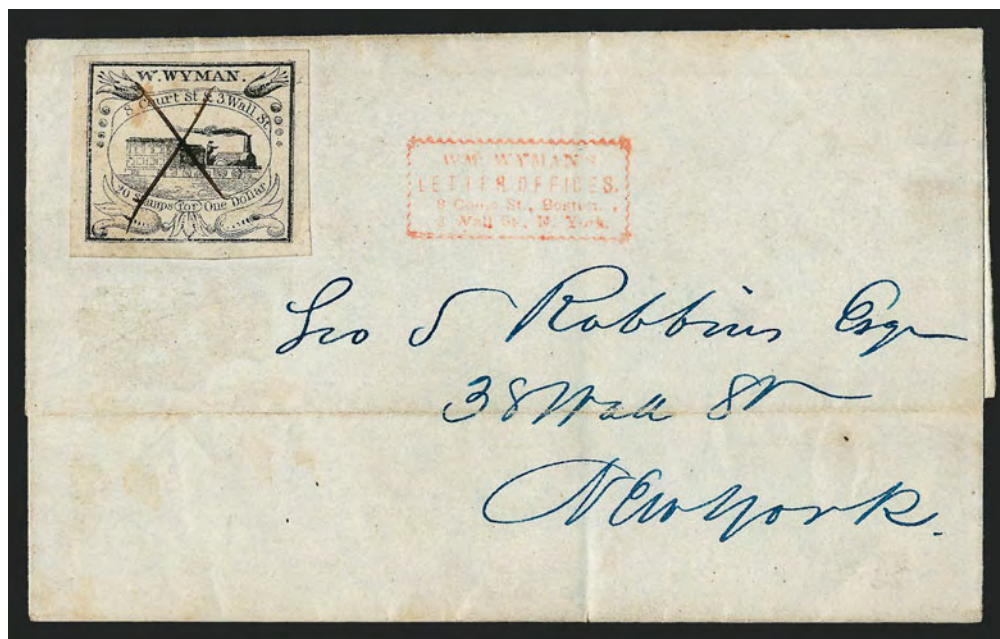 W. WYMAN.
8 Court St & 3 Wall St
20 Stamps for One Dollar
WM. WYMAN'S
LETTER OFFICES.
8 Court St., Boston.
3 Wall St., N. York.
Geo S Robbins Esqr
38 Wall St
New York.